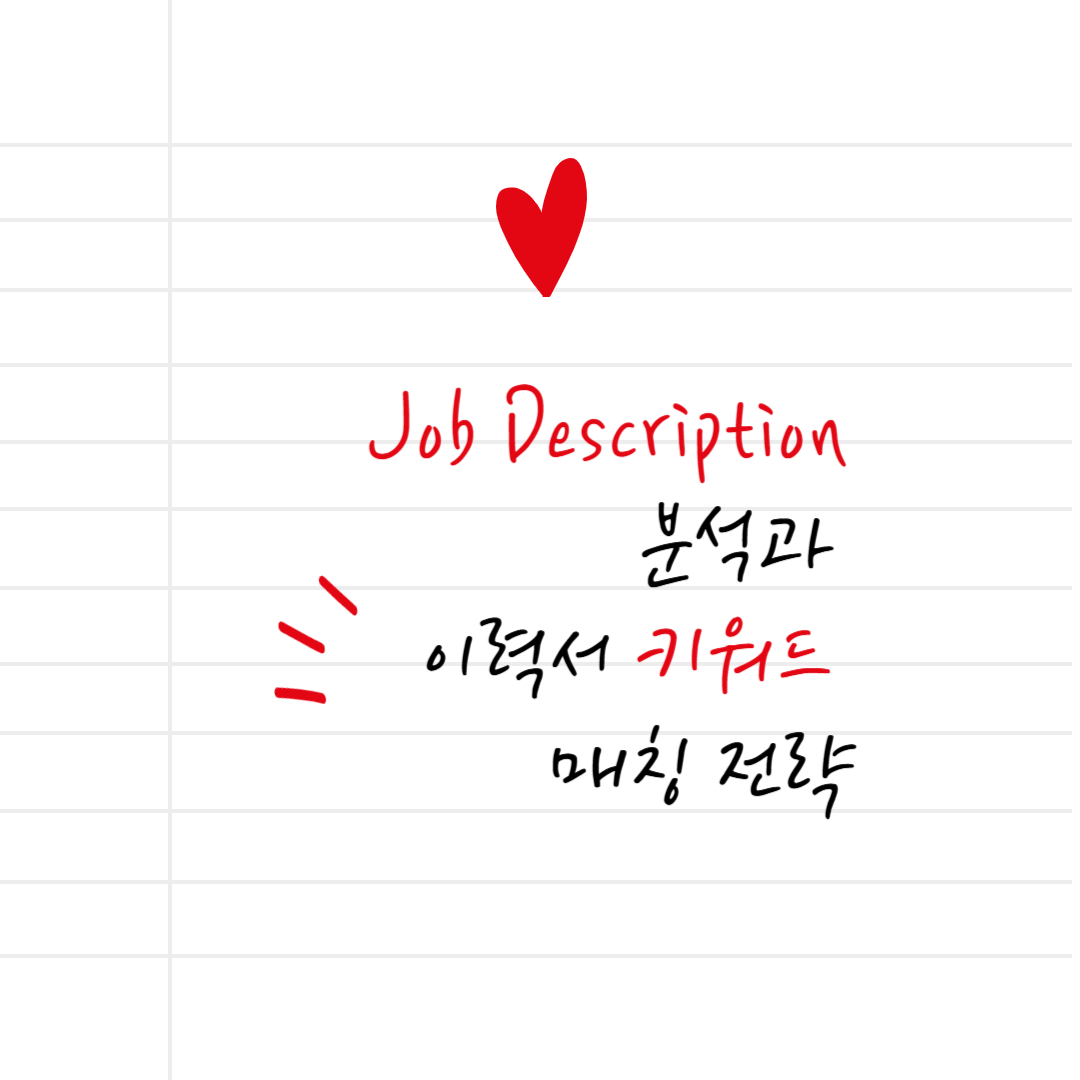 Job Description
분석과
이력서 키워드
매칭 전략